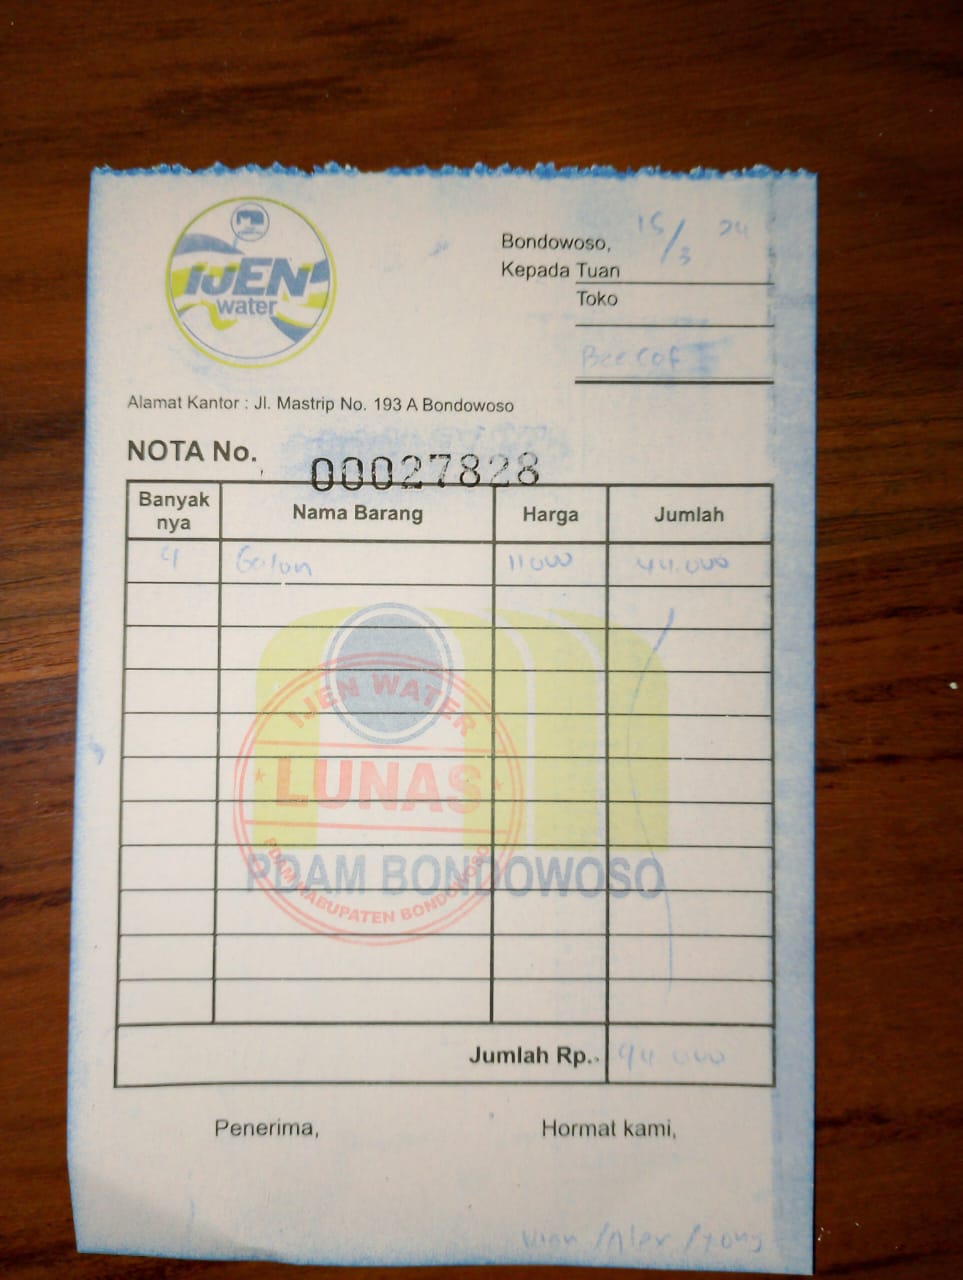 IJEN
water
Bondowoso, 15/3 24
Kepada Tuan
Toko
Bee Cof
Alamat Kantor : Jl. Mastrip No. 193 A Bondowoso
NOTA No. 00027828
Banyak nya Nama Barang Harga Jumlah
4 Galon 11000 44.000
IJEN WATER
LUNAS
PDAM KABUPATEN BONDOWOSO
PDAM BONDOWOSO
Jumlah Rp. 44.000
Penerima, Hormat kami,
/Alex /